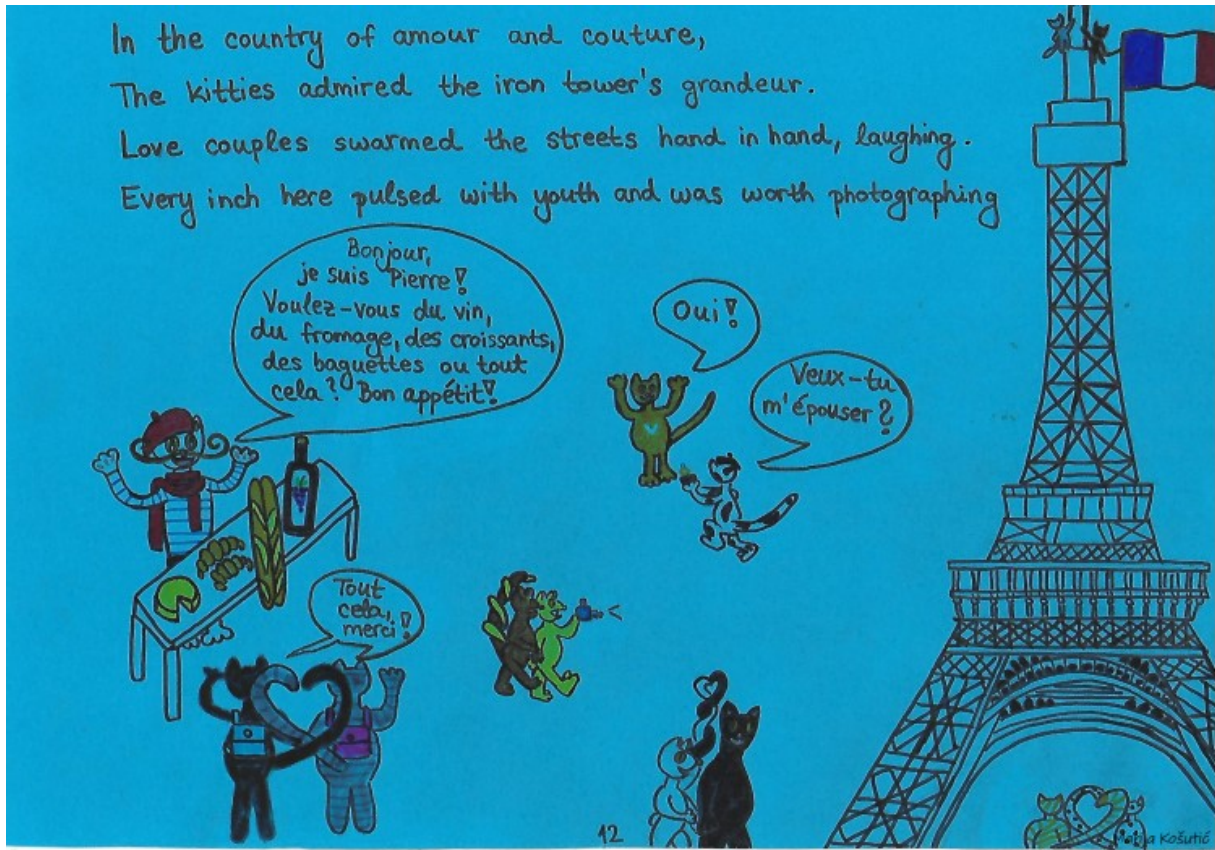 In the country of amour and couture,
The kitties admired the iron tower's grandeur.
Love couples swarmed the streets hand in hand, laughing.
Every inch here pulsed with youth and was worth photographing
Bonjour,
je suis Pierre!
Voulez-vous du vin,
du fromage, des croissants,
des baguettes ou tout
cela? Bon appétit!
Oui!
Veux-tu
m'épouser?
Tout
cela,
merci!
12
Marija Košutić